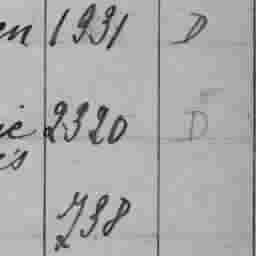 en 1931 D
ie 2320 D
es
738